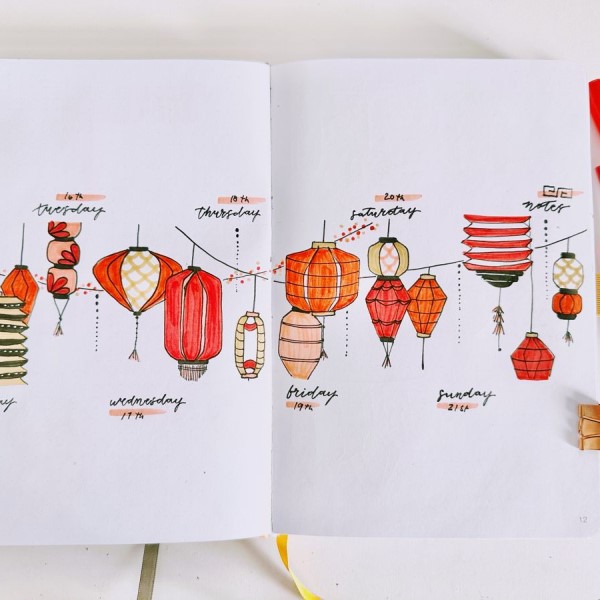 16th
tuesday
ay
wednesday
17th
18th
thursday
friday
19th
20th
saturday
sunday
21st
notes
12